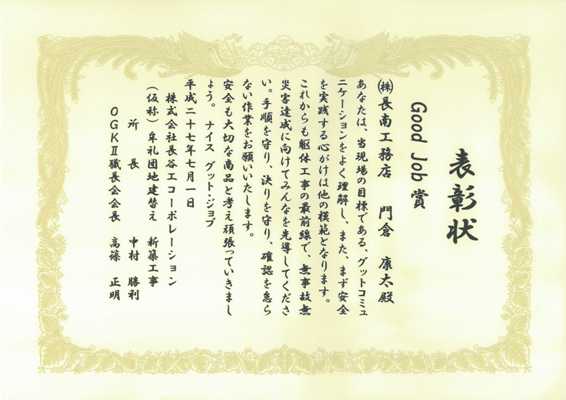 表彰状
Good Job賞
㈱長南工務店　門倉　康太殿
あなたは、当現場の目標である、グットコミュ
ニケーションをよく理解し、また、まず安全
を実践する心がけは他の模範となります。
これからも躯体工事の最前線で、無事故無
災害達成に向けてみんなを先導してくださ
い。手順を守り、決りを守り、確認を怠ら
ない作業をお願いいたします。
安全も大切な商品と考え頑張っていきまし
ょう。ナイス グット・ジョブ
平成二十七年七月一日
株式会社長谷工コーポレーション
（仮称）牟礼団地建替え　新築工事
所　長　　中村　勝利
ＯＧＫⅡ職長会会長　高篠　正明